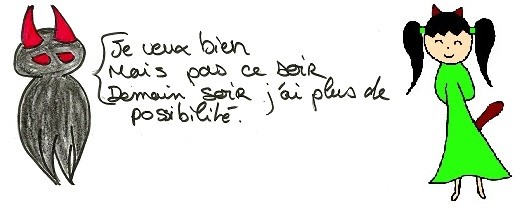 Je veux bien
Mais pas ce soir
Demain soir j'ai plus de
possibilité.